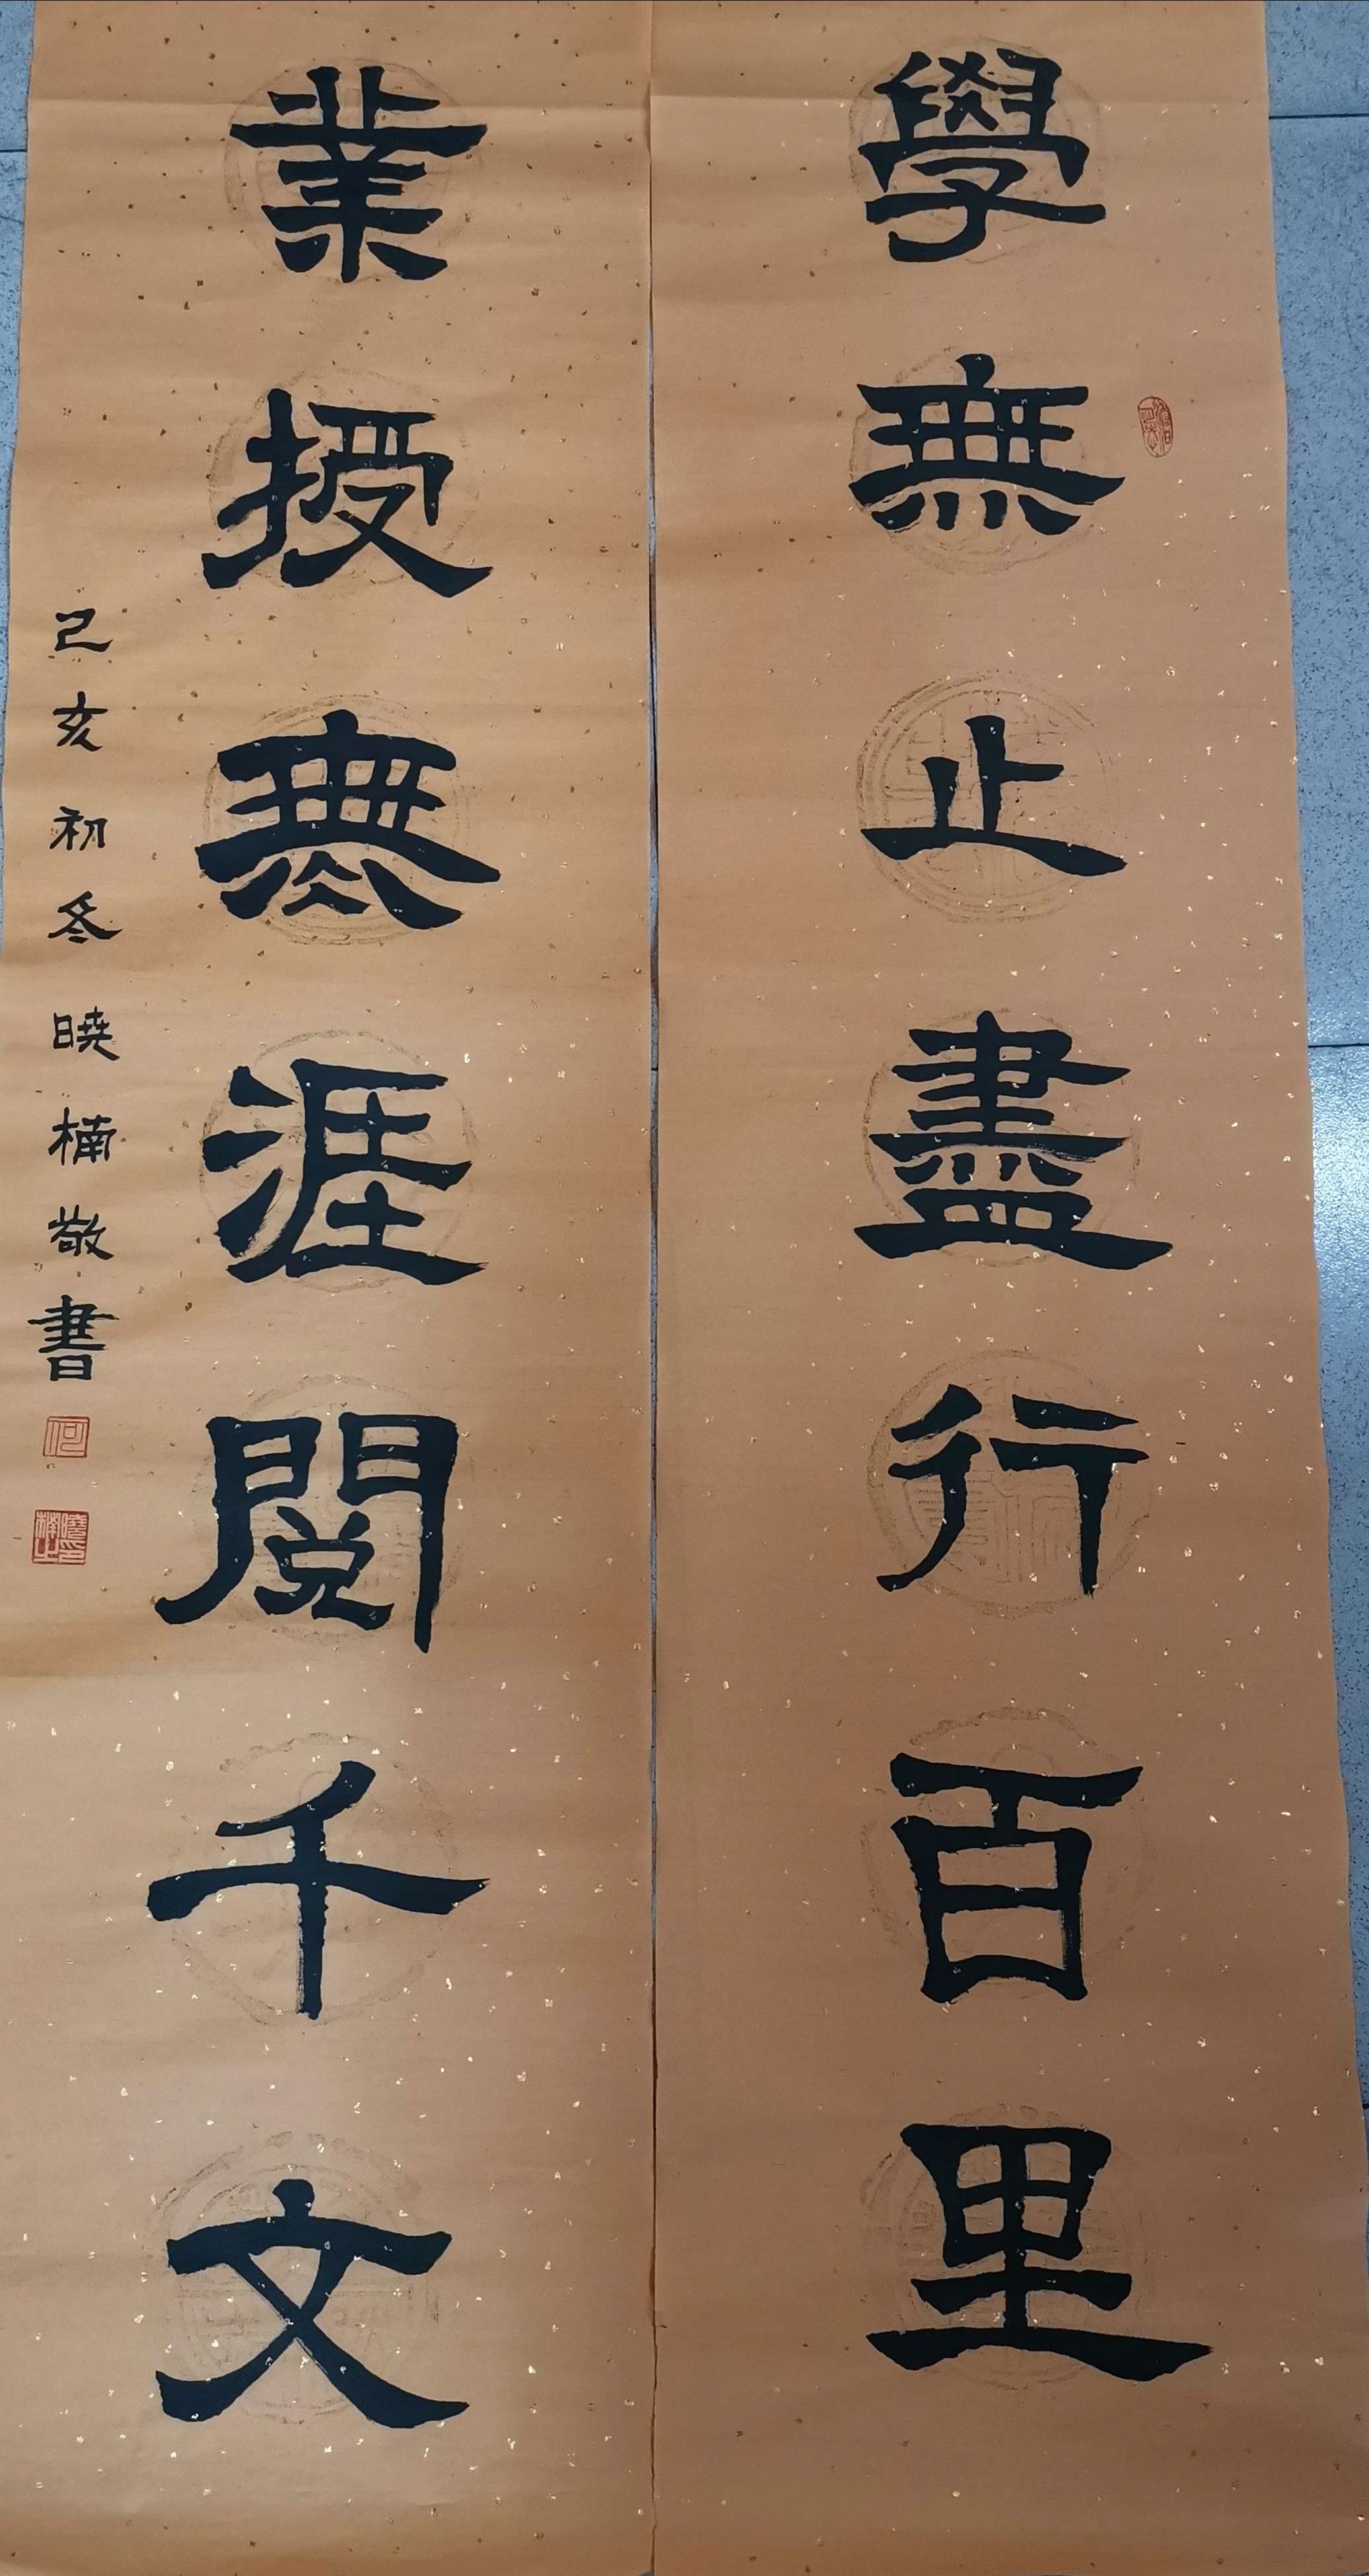 學無止盡行百里
業授無涯閱千文
己亥初冬曉楠敬書
何